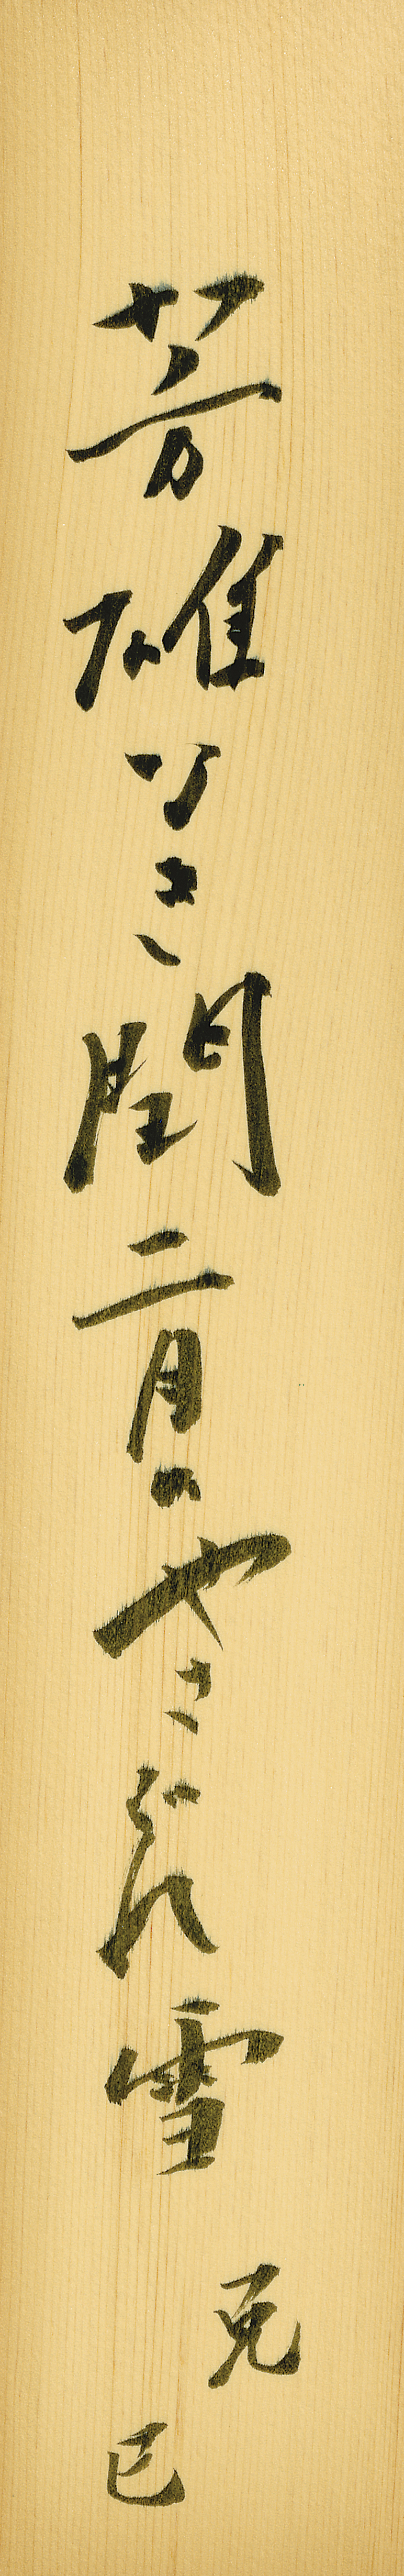 芳雄なき閏二月のやさぐれ雪
克巳